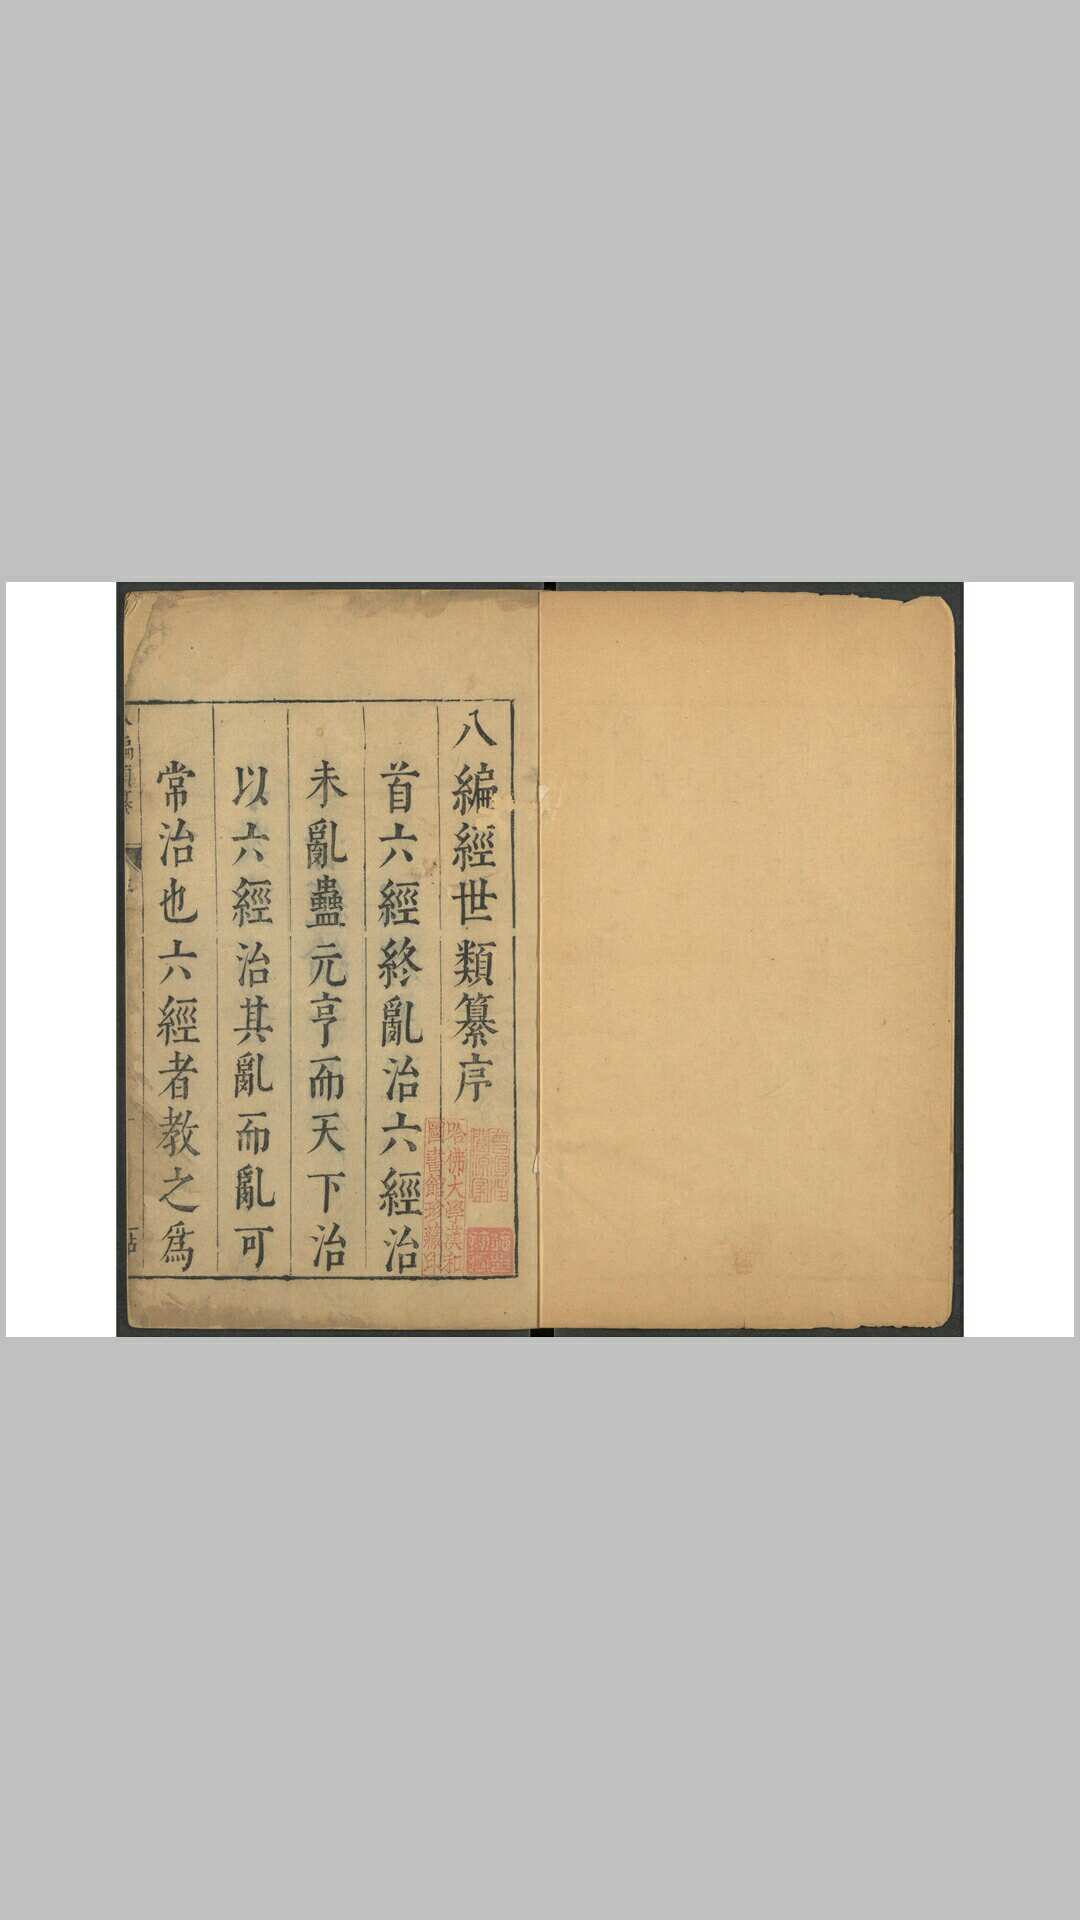 八編經世類纂序
首六經終亂治六經治
未亂蠱元亨而天下治
以六經治其亂而亂可
常治也六經者教之爲
哈佛大學漢和
圖書館珍藏印